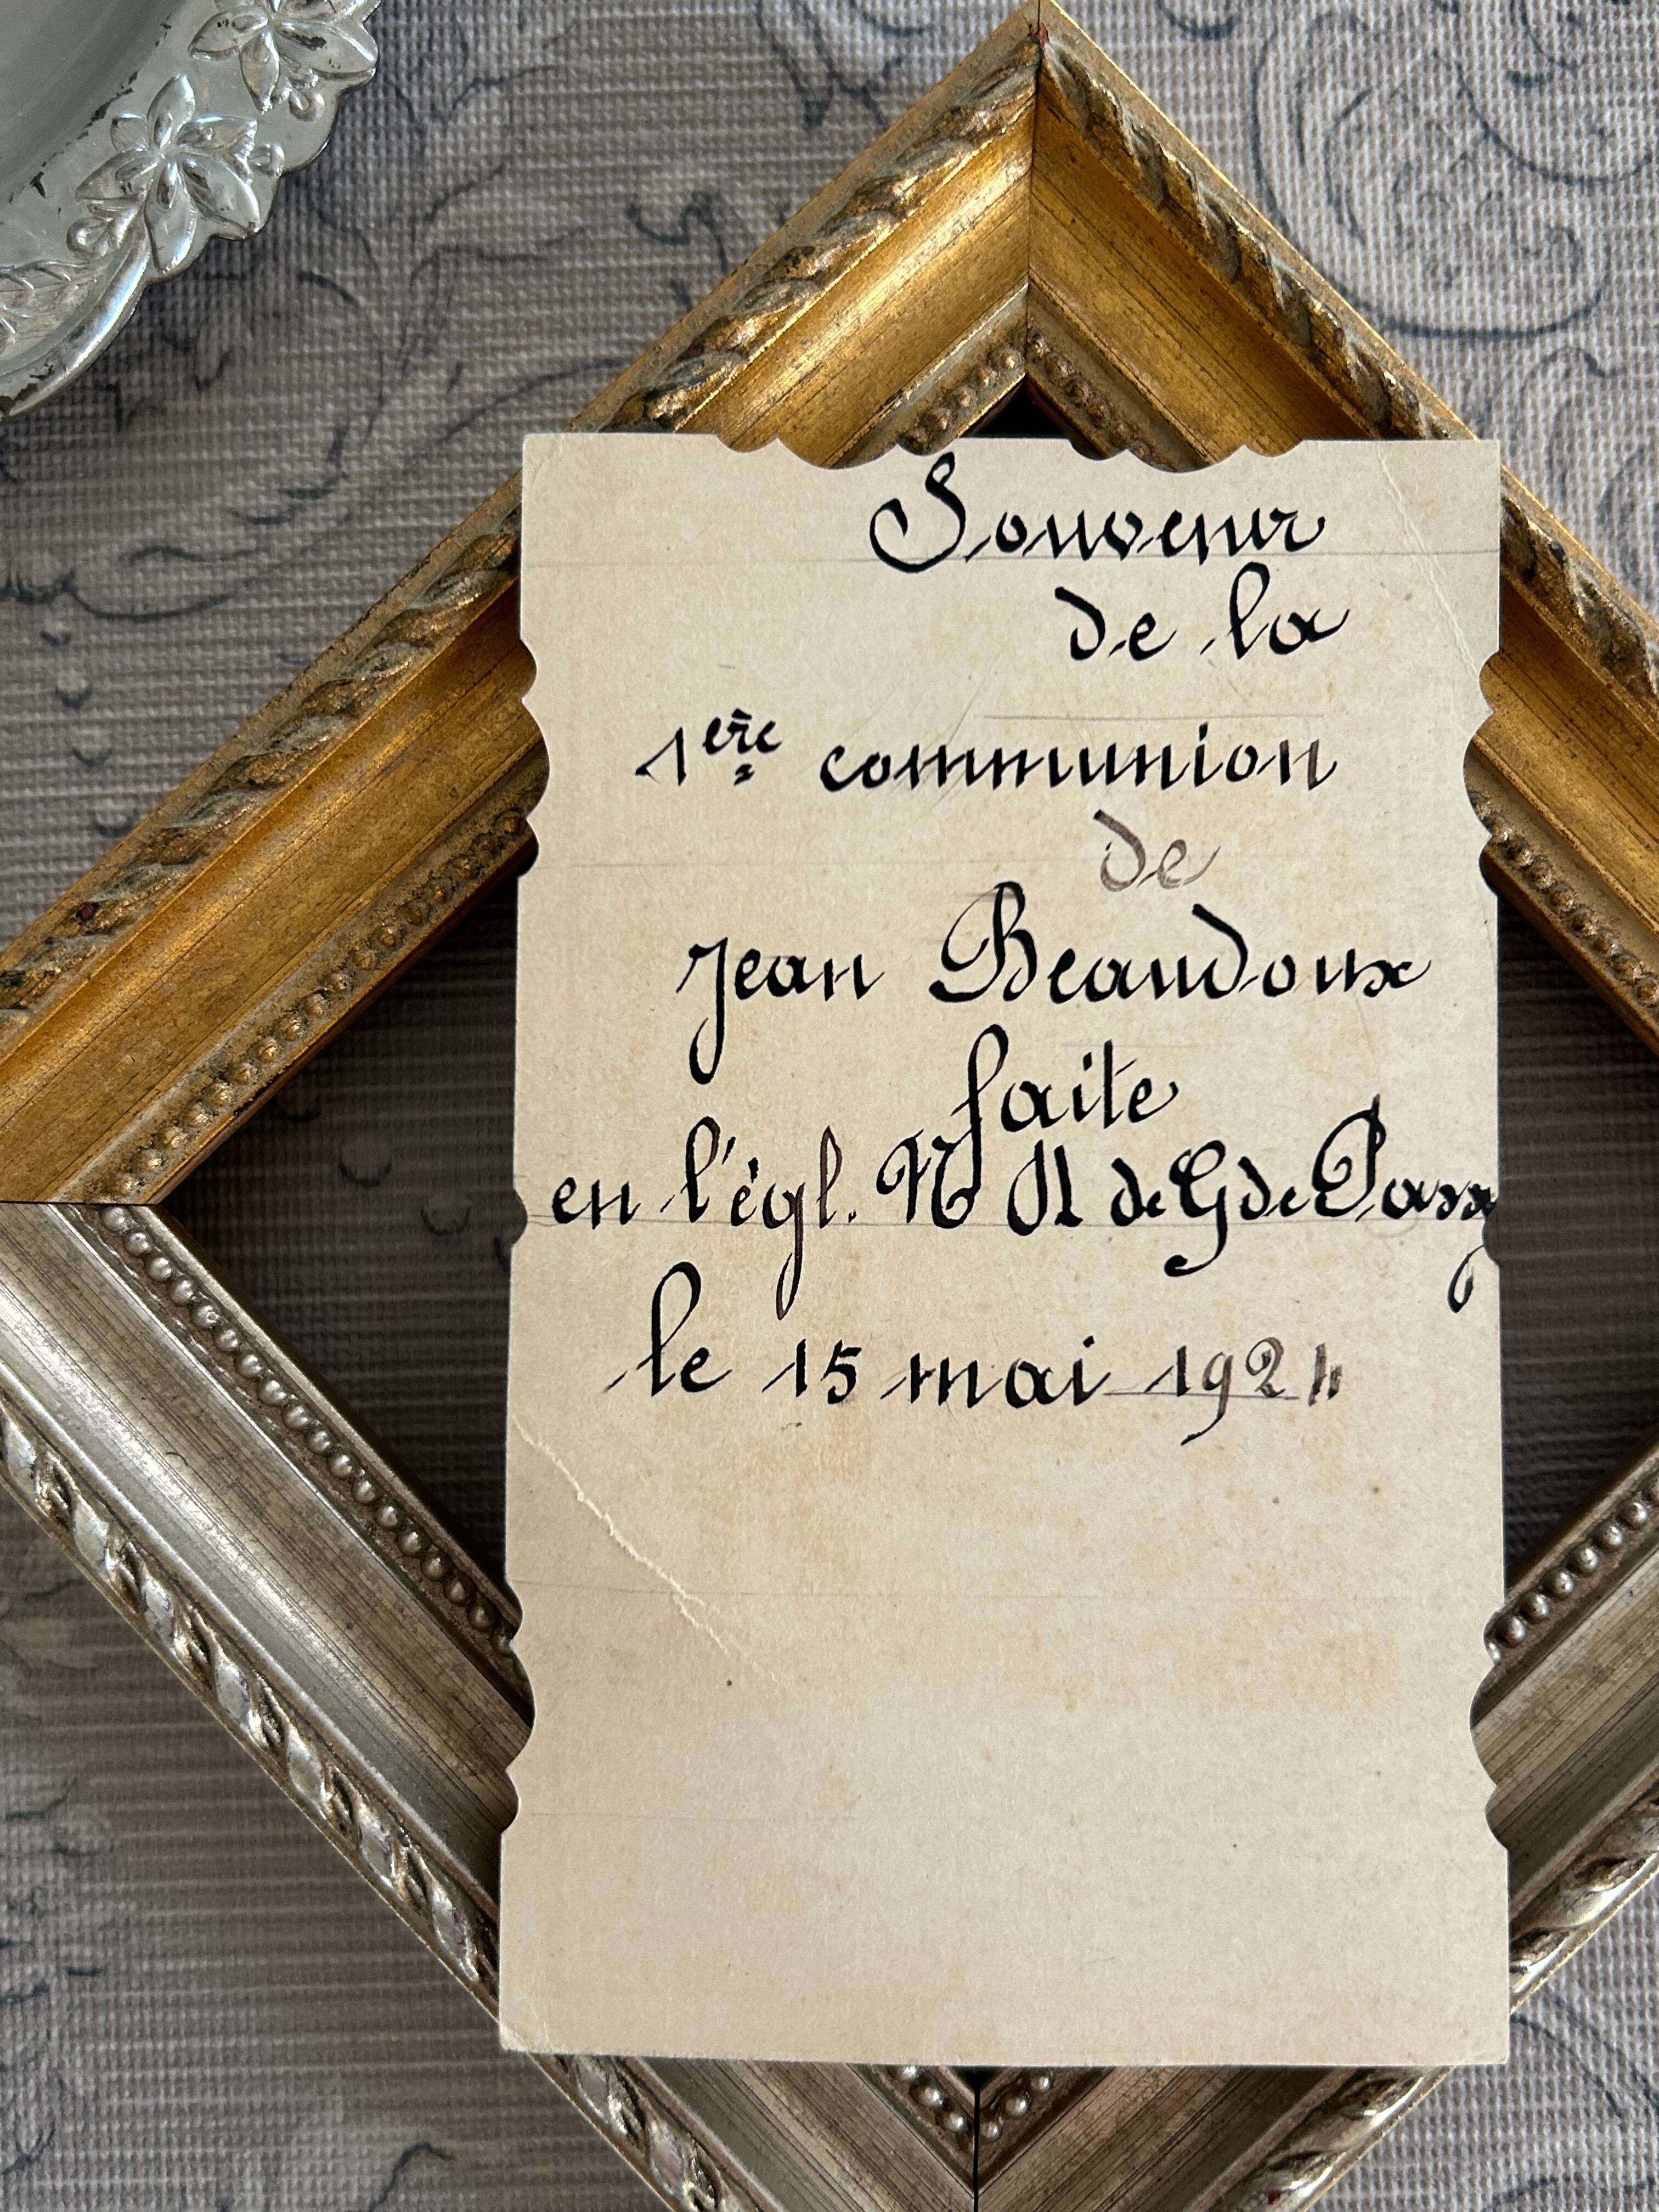 Souvenir
de la
1ère communion
de
Jean Beaudoux
faite
en l'égl. N D de G de Passy
le 15 mai 1924